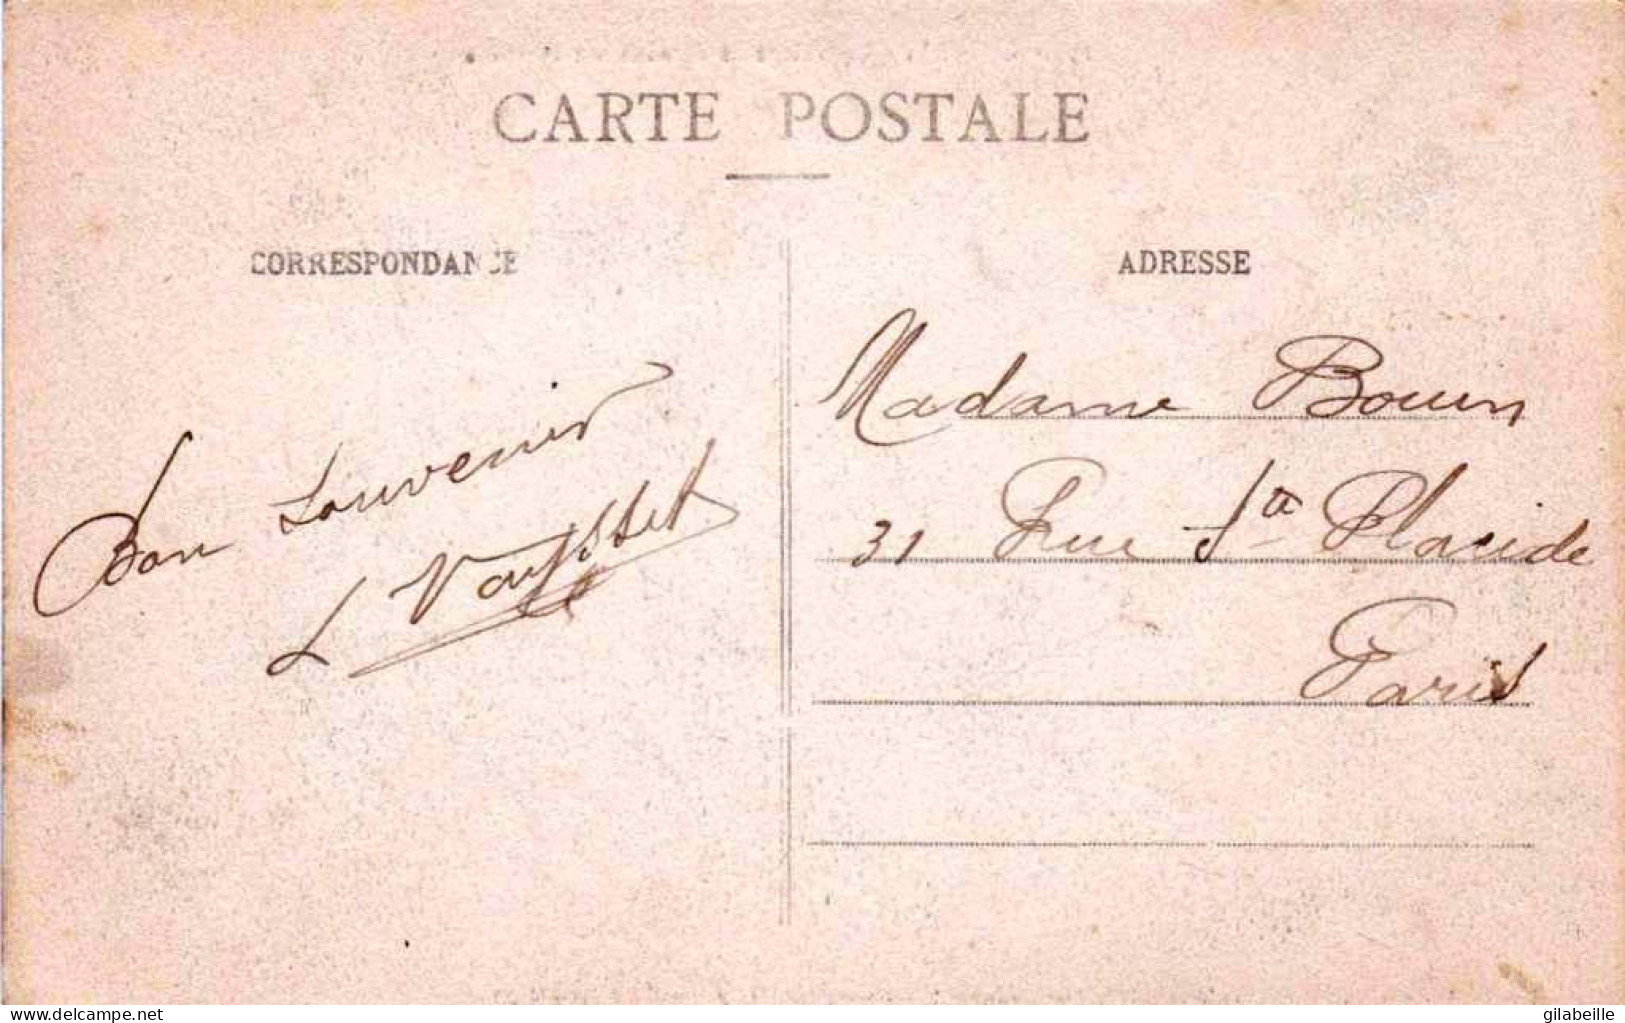 CARTE POSTALE
CORRESPONDANCE
Bon souvenir
L
ADRESSE
Madame Bouin
31 Rue Ste Placide
Paris
delcampe.net
gilabeille